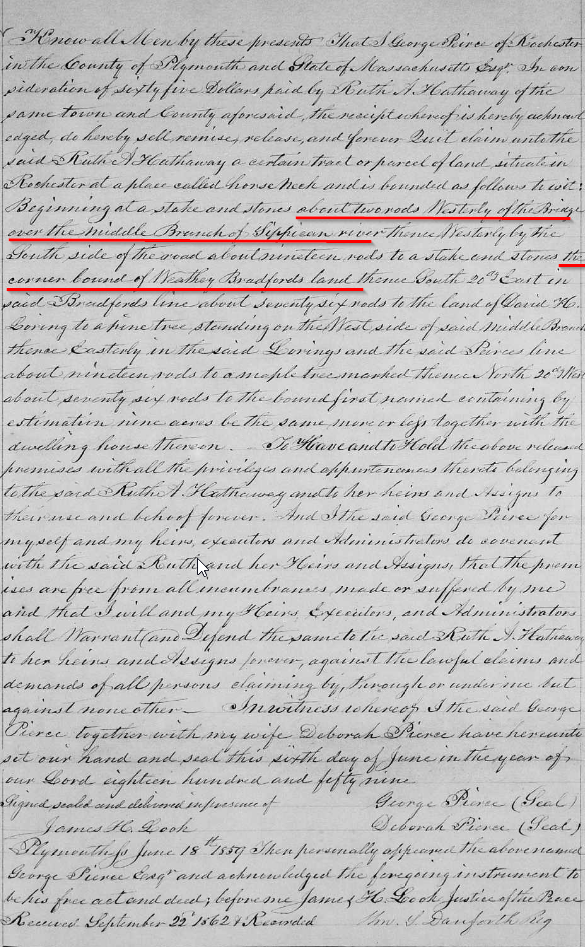 Know all Men by these presents That I George Peirce of Rochester
in the County of Plymouth and State of Massachusetts Esqr. In con
sideration of sixty five Dollars paid by Ruth A. Hathaway of the
same town and County aforesaid, the receipt whereof is hereby acknowl
edged, do hereby sell, remise, release, and forever Quit claim unto the
said Ruth A Hathaway a certain tract or parcel of land situate in
Rochester at a place called horse Neck and is bounded as follows to wit;
Beginning at a stake and stones about two rods Westerly of the Bridge
over the middle Branch of Sippican river thence Westerly by the
South side of the road about nineteen rods to a stake and stones the
corner bound of Bradfords land thence South 20° East in
said Bradfords line about seventy six rods to the land of David H.
Loring to a pine tree, standing on the West side of said Middle Branch
thence Easterly in the said Lorings and the said Peirces line
about nineteen rods to a maple tree marked thence North 20° West
about seventy six rods to the bound first named containing by
estimation nine acres be the same more or less together with the
dwelling house thereon. — To Have and to Hold the above released
premises with all the privileges and appurtenances thereto belonging
to the said Ruth A. Hathaway and to her heirs and Assigns to
their use and behoof forever. And I the said George Pierce for
myself and my heirs, executors and Administrators do covenent
with the said Ruth and her Heirs and Assigns, that the prem
ises are free from all incumbrances made or suffered by me
and that I will and my Heirs, Executors, and Administrators
shall Warrant and Defend the same to the said Ruth A. Hathaway
to her heirs and Assigns forever, against the lawful claims and
demands of all persons claiming by, through or under me but
against none other — In witness whereof I the said George
Pierce together with my wife Deborah Pierce have hereunto
set our hand and seal this sixth day of June in the year of
our Lord eighteen hundred and fifty nine
Signed sealed and delivered in presence of George Pierce (Seal)
James H. Look Deborah Pierce (Seal)
Plymouth ss June 18th 1859 Then personally appeared the above named
George Pierce Esqr and acknowledged the foregoing instrument to
be his free act and deed; before me James H. Look Justice of the Peace
Received September 22d 1862 & Recorded Wm. S. Danforth Reg